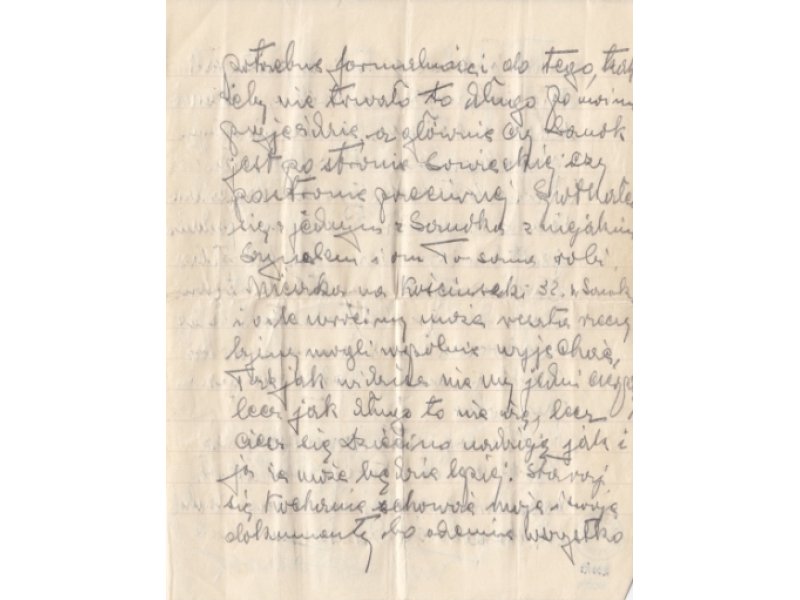 potrzebne formalności do tego, tak
żeby nie trwało to długo po
przyjeździe, a głównie czy Sanok
jest po stronie Sowieckiej czy
po stronie przeciwnej. Spotkałem
się z jednym z Sanoka z niejakim
i on to samo robi.
Mieszka na Kościuszki 32. w Sanoku
i o ile wrócimy może reszta rzeczy
byśmy mogli wspólnie wyjechać,
Tak jak widzisz nie my jedni
lecz jak długo to nie wiem, lecz
ciesz się Dziecino nadzieją jak i
ja że może będzie lepiej. Staraj
się Kochanie schować moje i twoje
dokumenty bo odemnie wszystko